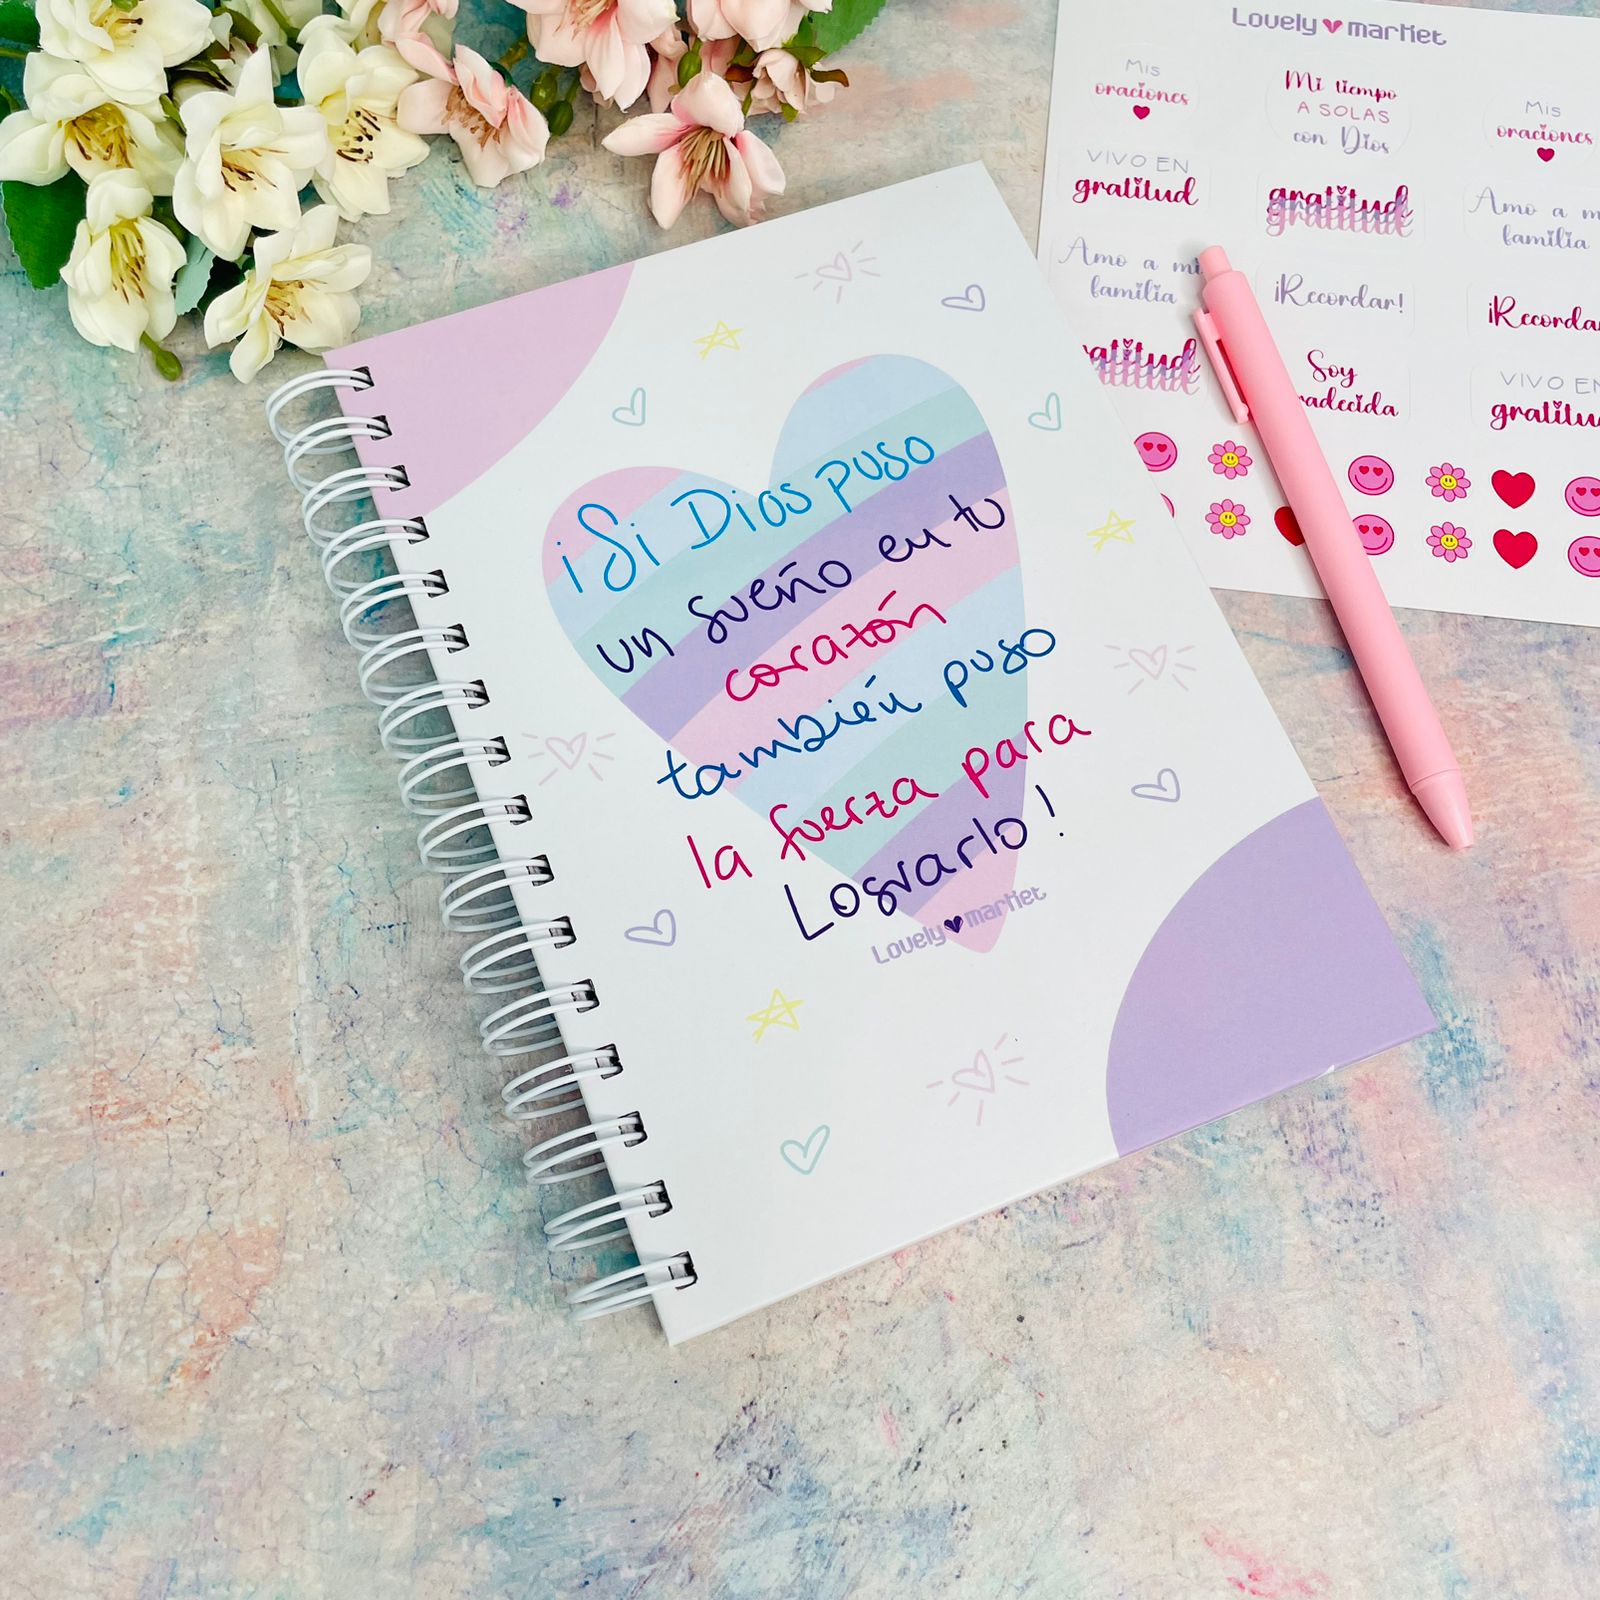 ¡Si Dios puso
un sueño en tu
corazón
también puso
la fuerza para
Lograrlo!
Lovely market
Lovely market
Mis
oraciones
Mi tiempo
A SOLAS
con Dios
Mis
oraciones
VIVO EN
gratitud
gratitud
gratitud
Amo a
familia
Amo a mi
familia
¡Recordar!
gratitud
gratitud
Soy
VIVO EN